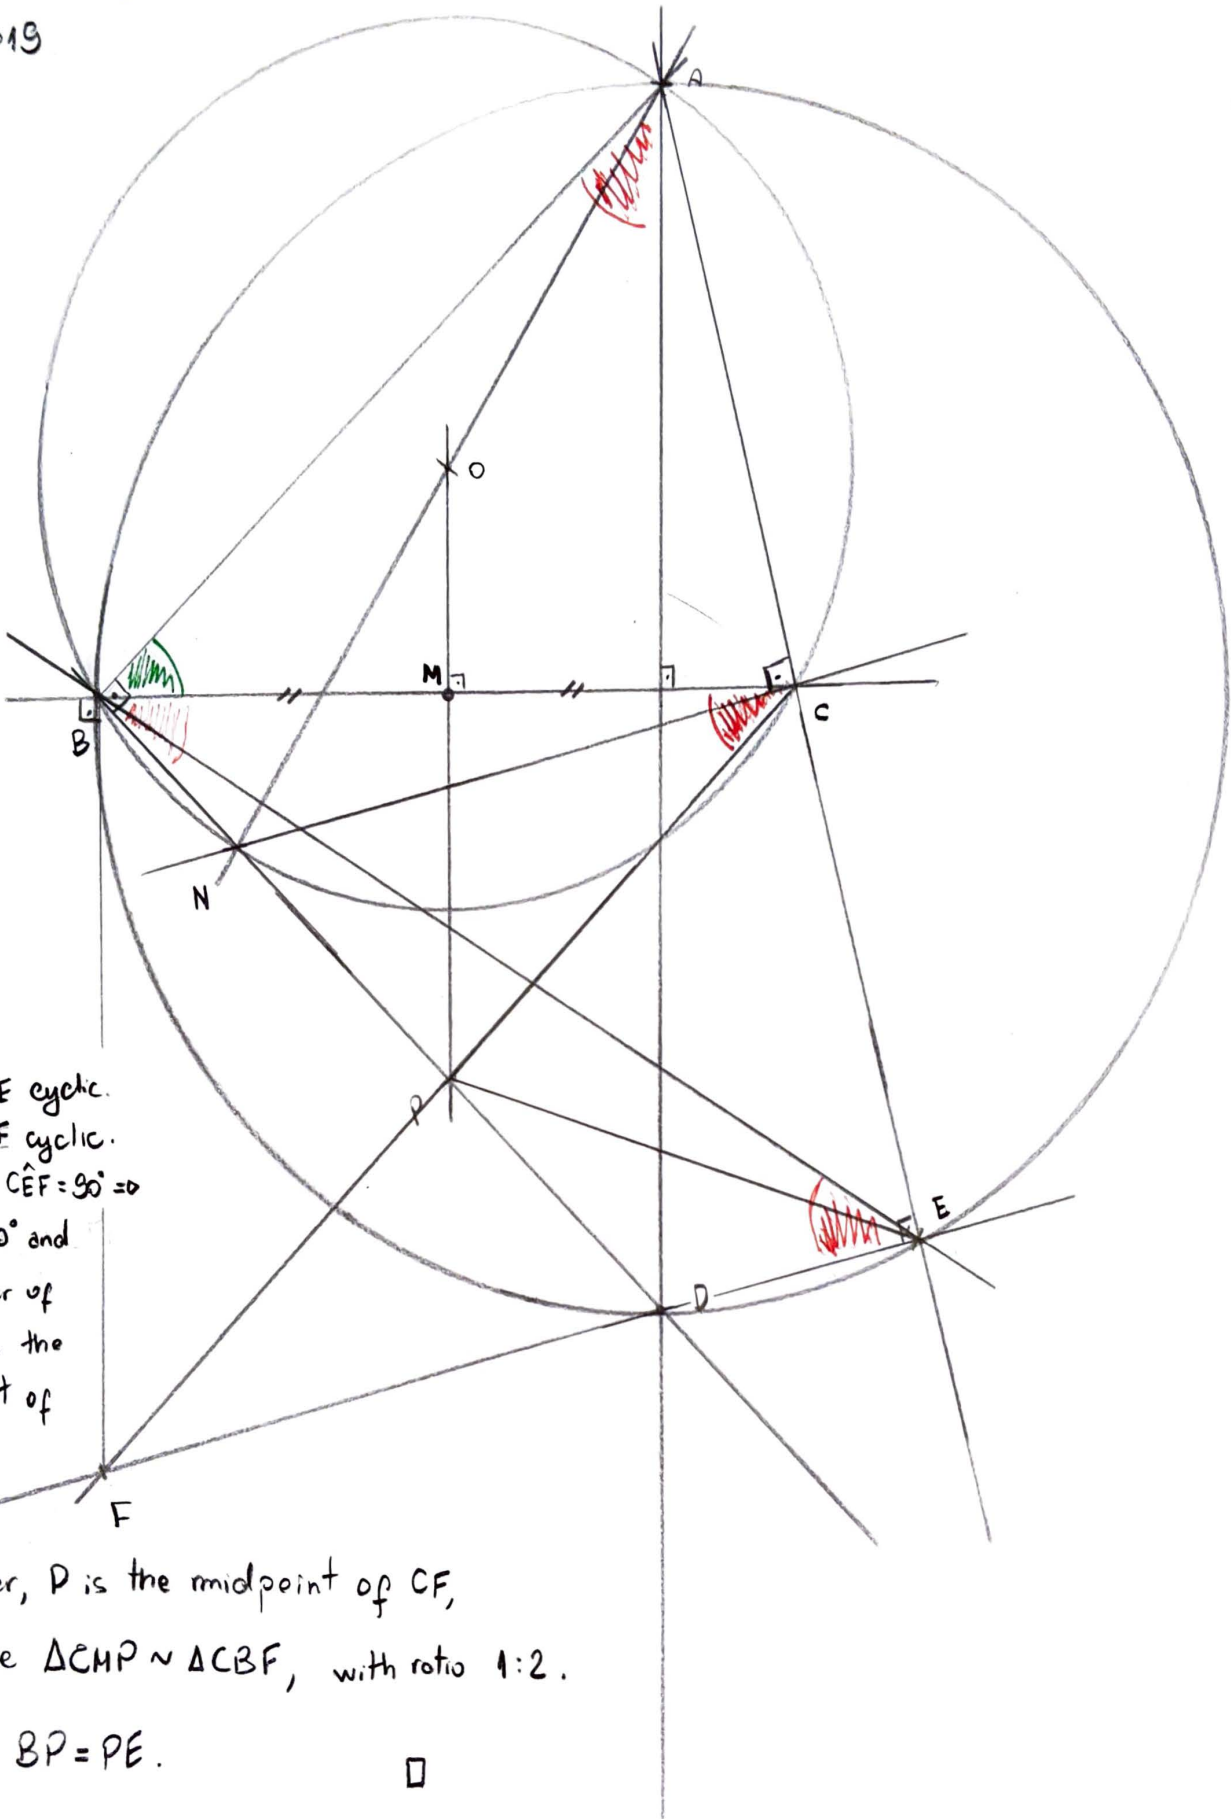 19
A
O
M
B
C
N
E cyclic.
F cyclic.
P
CÊF = 90° ⇒
0° and
E
r of
D
the
t of
F
r, P is the midpoint of CF,
e ΔCMP ~ ΔCBF, with ratio 1:2.
BP = PE. □